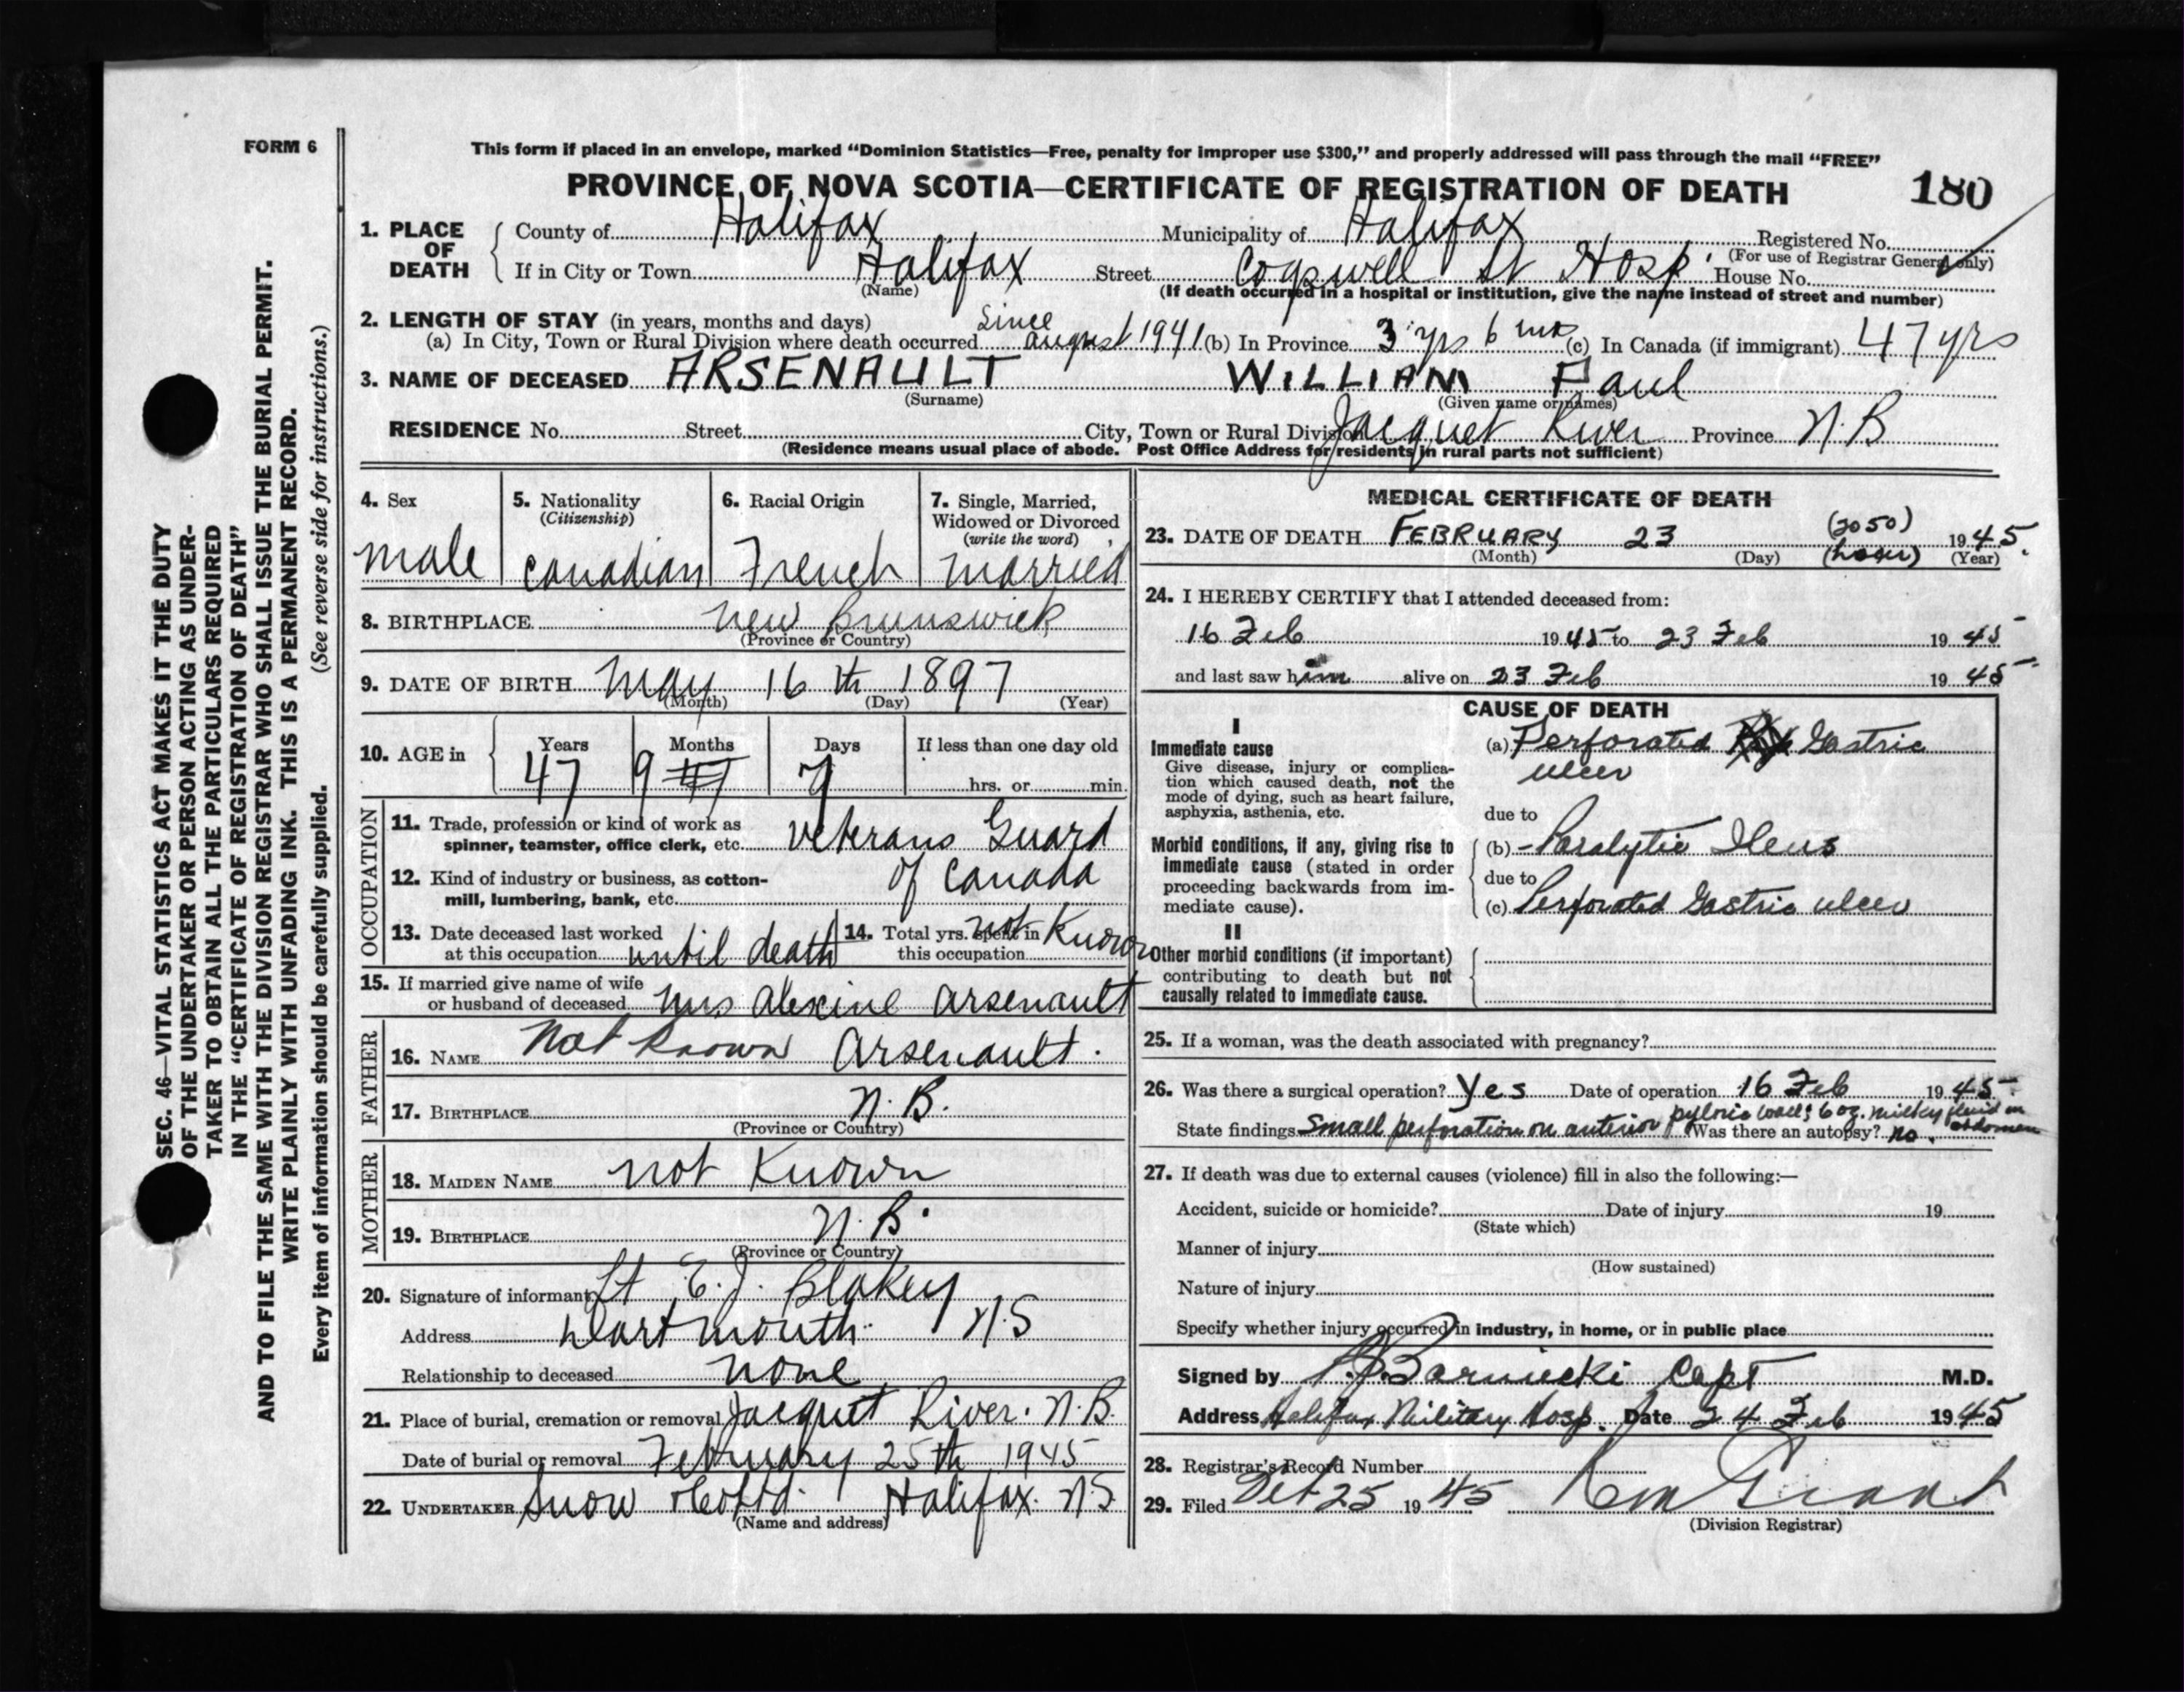 FORM 6
This form if placed in an envelope, marked “Dominion Statistics—Free, penalty for improper use $300,” and properly addressed will pass through the mail “FREE”
PROVINCE OF NOVA SCOTIA—CERTIFICATE OF REGISTRATION OF DEATH 180
1. PLACE OF DEATH
County of Halifax Municipality of Halifax Registered No.
(For use of Registrar General only)
If in City or Town Halifax Street Cogswell St Hosp. House No.
(Name) (If death occurred in a hospital or institution, give the name instead of street and number)
2. LENGTH OF STAY (in years, months and days)
(a) In City, Town or Rural Division where death occurred since august 1941 (b) In Province 3 yrs 6 mts (c) In Canada (if immigrant) 47 yrs
3. NAME OF DECEASED ARSENAULT WILLIAM Paul
(Surname) (Given name or names)
RESIDENCE No. Street City, Town or Rural Division Jacquet River Province N.B
(Residence means usual place of abode. Post Office Address for residents in rural parts not sufficient)
4. Sex
male
5. Nationality
(Citizenship)
canadian
6. Racial Origin
French
7. Single, Married,
Widowed or Divorced
(write the word)
married
8. BIRTHPLACE new Brunswick
(Province or Country)
9. DATE OF BIRTH may 16th 1897
(Month) (Day) (Year)
10. AGE in
Years Months Days If less than one day old
47 9 7 hrs. or min.
OCCUPATION
11. Trade, profession or kind of work as
spinner, teamster, office clerk, etc. veterans Guard
12. Kind of industry or business, as cotton-
mill, lumbering, bank, etc. of Canada
13. Date deceased last worked
at this occupation until death
14. Total yrs. spent in
this occupation not Known
15. If married give name of wife
or husband of deceased mrs alexine arsenault
FATHER
16. NAME Not known Arsenault.
17. BIRTHPLACE N.B.
(Province or Country)
MOTHER
18. MAIDEN NAME not Known
19. BIRTHPLACE N.B
(Province or Country)
20. Signature of informant Lt E.J. Blakey
Address Dartmouth. N.S
Relationship to deceased none
21. Place of burial, cremation or removal Jacquet River. N.B.
Date of burial or removal February 25th 1945
22. UNDERTAKER Snow &Co Ltd. Halifax. N.S
(Name and address)
MEDICAL CERTIFICATE OF DEATH
23. DATE OF DEATH FEBRUARY 23 (2050) 1945.
(Month) (Day) (hour) (Year)
24. I HEREBY CERTIFY that I attended deceased from:
16 Feb 1945 to 23 Feb 1945
and last saw him alive on 23 Feb 1945
CAUSE OF DEATH
I
Immediate cause
Give disease, injury or complica-
tion which caused death, not the
mode of dying, such as heart failure,
asphyxia, asthenia, etc.
(a) Perforated Gastric
ulcer
due to
Morbid conditions, if any, giving rise to
immediate cause (stated in order
proceeding backwards from im-
mediate cause).
(b) - Paralytic Ileus
due to
(c) Perforated Gastric ulcer
II
Other morbid conditions (if important)
contributing to death but not
causally related to immediate cause.
25. If a woman, was the death associated with pregnancy?
26. Was there a surgical operation? Yes Date of operation 16 Feb 1945
State findings Small perforation on anterior pyloric wall: 6 oz. milky fluid in abdomen
Was there an autopsy? no.
27. If death was due to external causes (violence) fill in also the following:—
Accident, suicide or homicide? Date of injury 19
(State which)
Manner of injury
(How sustained)
Nature of injury
Specify whether injury occurred in industry, in home, or in public place
Signed by Barniecki Capt M.D.
Address Halifax Military Hosp. Date 24 Feb 1945
28. Registrar's Record Number
29. Filed 25 1945 Grant
(Division Registrar)
SEC. 46—VITAL STATISTICS ACT MAKES IT THE DUTY
OF THE UNDERTAKER OR PERSON ACTING AS UNDER-
TAKER TO OBTAIN ALL THE PARTICULARS REQUIRED
IN THE “CERTIFICATE OF REGISTRATION OF DEATH”
AND TO FILE THE SAME WITH THE DIVISION REGISTRAR WHO SHALL ISSUE THE BURIAL PERMIT.
WRITE PLAINLY WITH UNFADING INK. THIS IS A PERMANENT RECORD.
Every item of information should be carefully supplied. (See reverse side for instructions.)